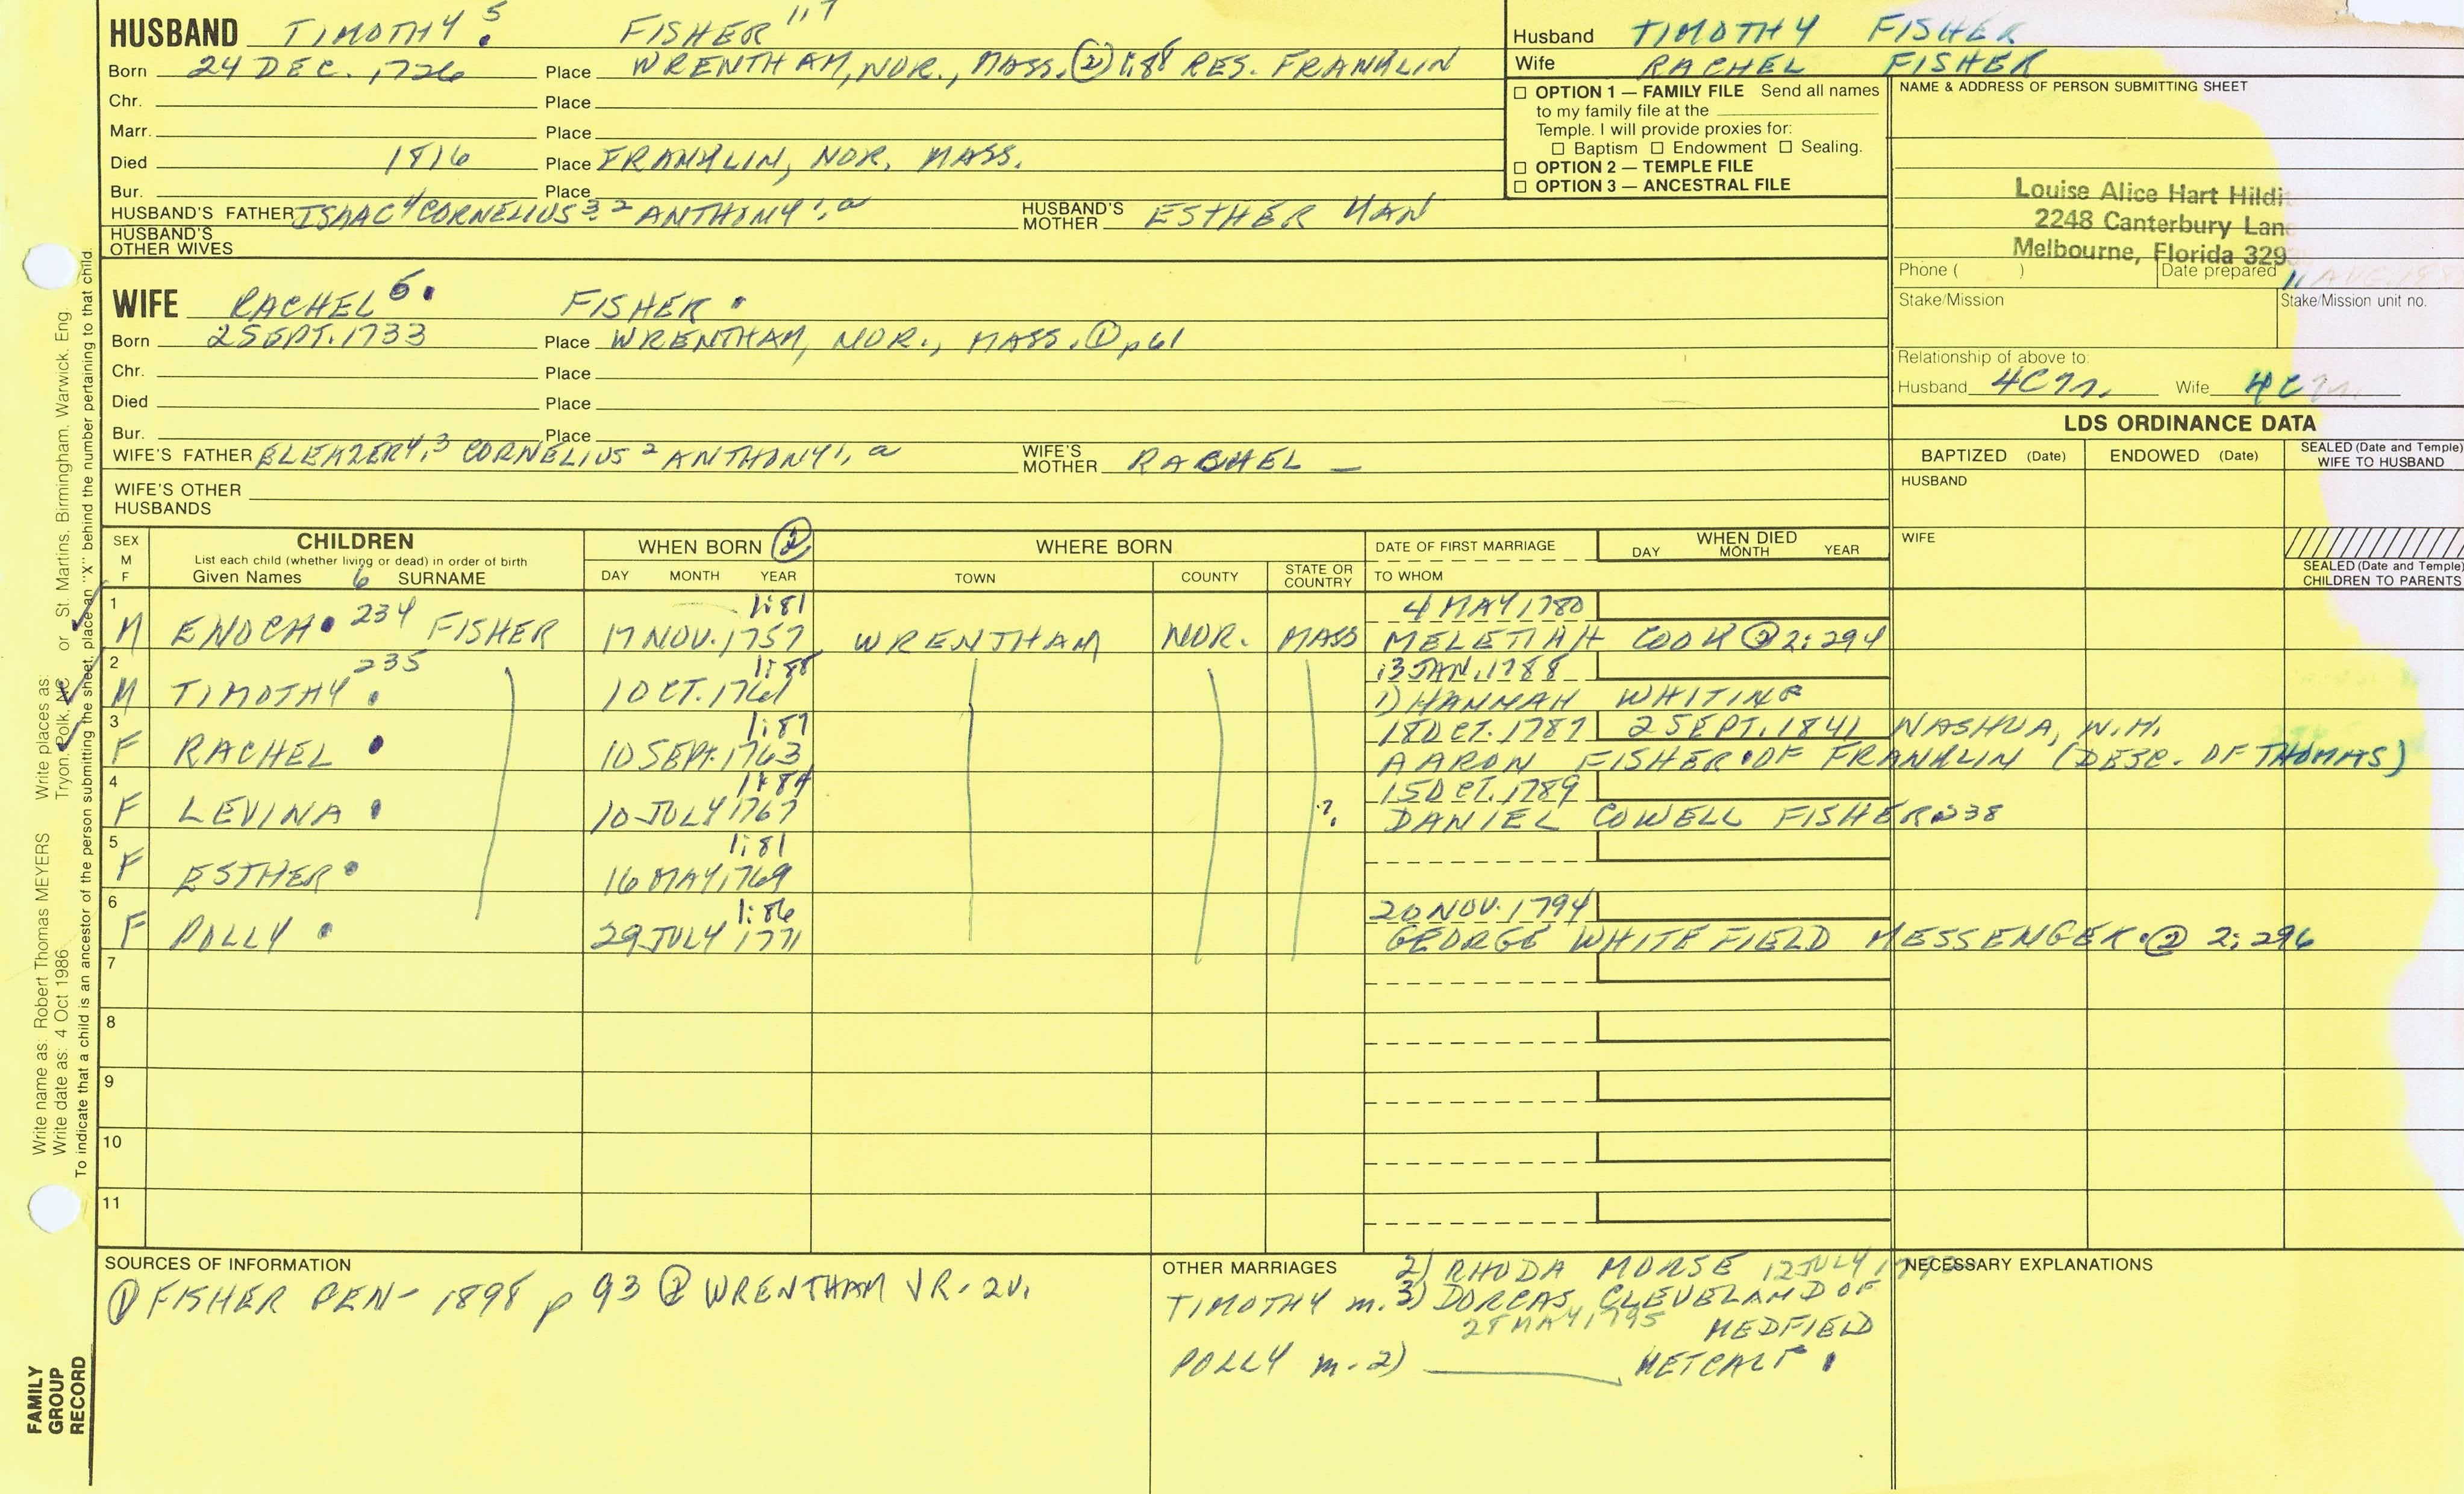 HUSBAND TIMOTHY 5. FISHER 117
Born 24 DEC. 1726 Place WRENTHAM, NOR., MASS. ② 1:88 RES. FRANKLIN
Chr. Place
Marr. Place
Died 1816 Place FRANKLIN, NOR. MASS.
Bur. Place
HUSBAND'S FATHER ISAAC 4 CORNELIUS 3, 2 ANTHONY 1, a HUSBAND'S MOTHER ESTHER MAN
HUSBAND'S OTHER WIVES
WIFE RACHEL 5. FISHER .
Born 2 SEPT. 1733 Place WRENTHAM, NOR., MASS. ① p 61
Chr. Place
Died Place
Bur. Place
WIFE'S FATHER ELEAZER 4, 3 CORNELIUS 2 ANTHONY 1, a WIFE'S MOTHER RACHEL —
WIFE'S OTHER HUSBANDS
Husband TIMOTHY FISHER
Wife RACHEL FISHER
☐ OPTION 1 — FAMILY FILE Send all names
to my family file at the
Temple. I will provide proxies for:
☐ Baptism ☐ Endowment ☐ Sealing.
☐ OPTION 2 — TEMPLE FILE
☐ OPTION 3 — ANCESTRAL FILE
NAME & ADDRESS OF PERSON SUBMITTING SHEET
Louise Alice Hart
2248 Canterbury
Melbourne, Florida
Phone ( ) Date prepared 11 AUG.
Stake/Mission Stake/Mission unit no.
Relationship of above to:
Husband 4C7r. Wife 4C7r.
LDS ORDINANCE DATA
BAPTIZED (Date) ENDOWED (Date) SEALED (Date and Temple) WIFE TO HUSBAND
HUSBAND
WIFE
SEALED (Date and Temple) CHILDREN TO PARENTS
SEX M F
CHILDREN
List each child (whether living or dead) in order of birth
Given Names 6 SURNAME
WHEN BORN ②
DAY MONTH YEAR
WHERE BORN
TOWN COUNTY STATE OR COUNTRY
DATE OF FIRST MARRIAGE
TO WHOM
WHEN DIED
DAY MONTH YEAR
1 1:81 4 MAY 1780
M ENOCH. 234 FISHER 17 NOV. 1757 WRENTHAM NOR. MASS MELETIAH COOK ② 2:294
2 235 1:88 13 JAN. 1788
M TIMOTHY . 1 OCT. 1761 1) HANNAH WHITING
3 1:87 18 OCT. 1787 2 SEPT. 1841 NASHUA, N.H.
F RACHEL . 10 SEPT. 1763 AARON FISHER. OF FRANKLIN (DESC. OF THOMAS)
4 1:84 15 OCT. 1789
F LEVINA . 10 JULY 1767 ?. DANIEL COWELL FISHER 238
5 1:81
F ESTHER . 16 MAY 1769
6 1:86 20 NOV. 1794
F POLLY . 29 JULY 1771 GEORGE WHITEFIELD MESSENGER. ② 2:296
7
8
9
10
11
SOURCES OF INFORMATION
① FISHER GEN- 1898 p 93 ② WRENTHAM VR. 2v.
OTHER MARRIAGES 2) RHODA MORSE 12 JULY
TIMOTHY m. 3) DORCAS CLEVELAND OF
28 MAY 1795 MEDFIELD
POLLY m. 2) ______ METCALF .
NECESSARY EXPLANATIONS
Write name as: Robert Thomas MEYERS Write places as: St. Martins, Birmingham, Warwick, Eng.
Write date as: 4 Oct 1986 Tryon, Polk, NC or
To indicate that a child is an ancestor of the person submitting the sheet, place an "X" behind the number pertaining to that child.
FAMILY
GROUP
RECORD